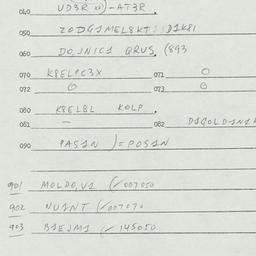 040 UD3R »)-AT3R.
050 ZODG1MEL8KT11D1KPI
060 DO,JNIC1 GRUS. (893
070 K8ELPC3X 071 0
072 0 073 0
080 K8ELBL KOLP.
081 - 082
090 PAS1N )= POS1N
901 MOLDO,V1 (/007050
902 NU1NT (/007070
903 B1EJM1 (/145050